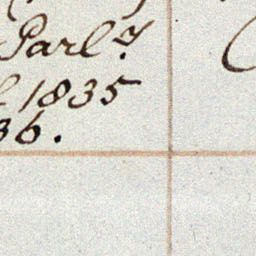 Parl.y
1835
36.